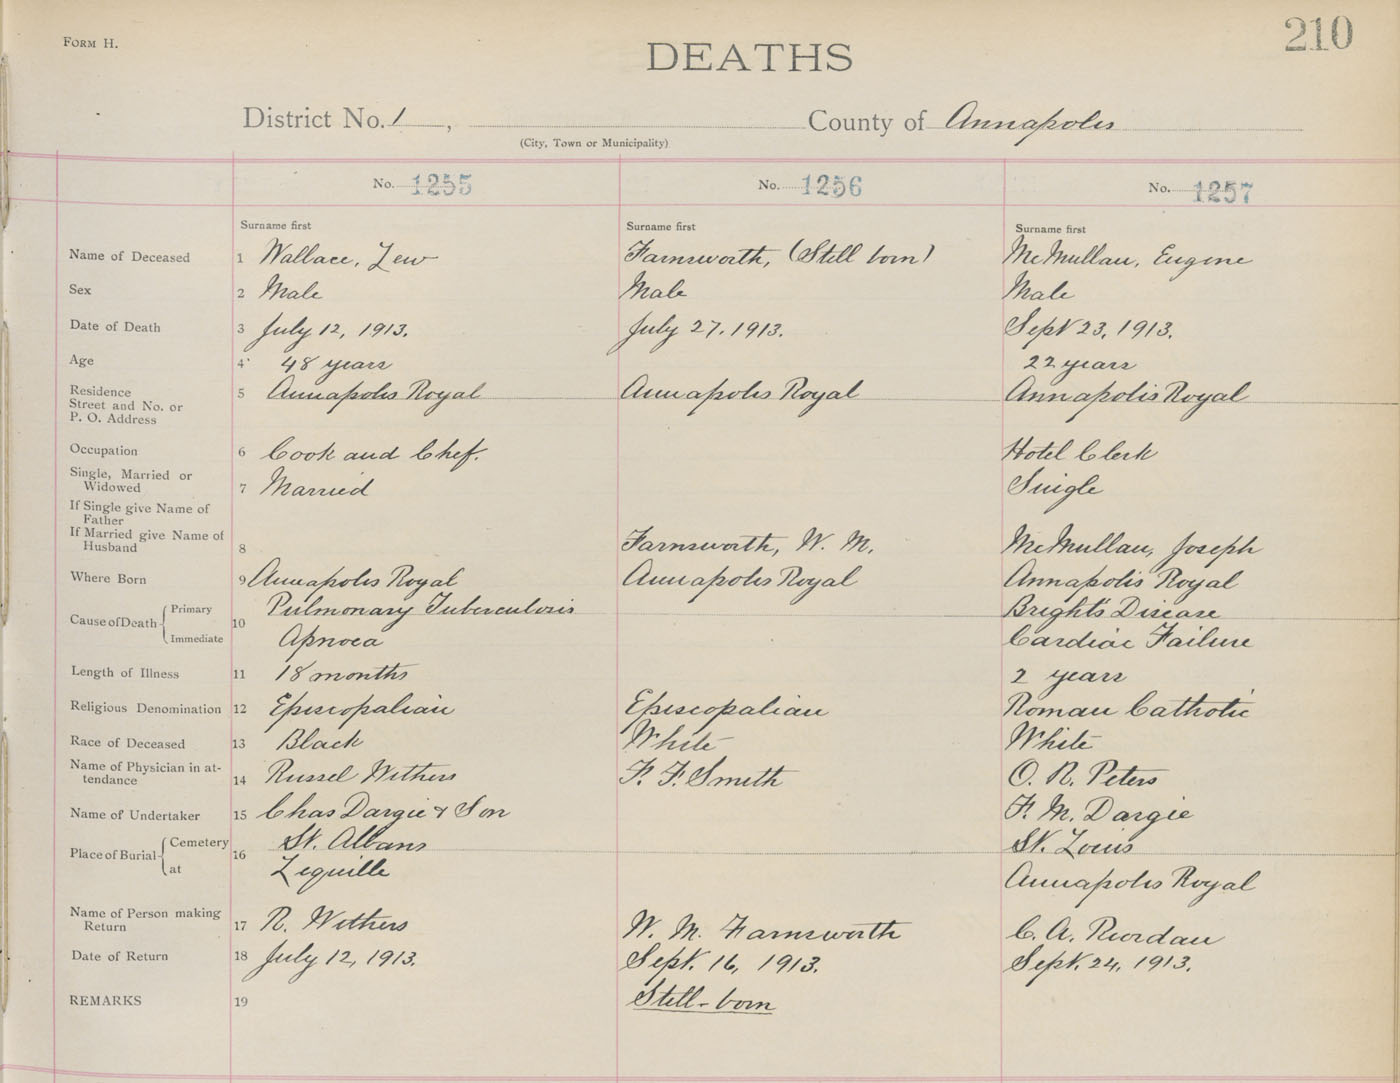 FORM H.
210
DEATHS
District No. 1, County of Annapolis
(City, Town or Municipality)
No. 1255 No. 1256 No. 1257
Surname first Surname first Surname first
Name of Deceased 1 Wallace, Lew Farnsworth, (Still born) McMullan, Eugene
Sex 2 Male Male Male
Date of Death 3 July 12, 1913. July 27, 1913. Sept 23, 1913.
Age 4 48 years 22 years
Residence
Street and No. or
P. O. Address 5 Annapolis Royal Annapolis Royal Annapolis Royal
Occupation 6 Cook and Chef. Hotel Clerk
Single, Married or
Widowed 7 Married Single
If Single give Name of
Father
If Married give Name of
Husband 8 Farnsworth, W. M. McMullan, Joseph
Where Born 9 Annapolis Royal Annapolis Royal Annapolis Royal
Cause of Death 10
Primary Pulmonary Tuberculosis Bright's Disease
Immediate Apnoea Cardiac Failure
Length of Illness 11 18 months 2 years
Religious Denomination 12 Episcopalian Episcopalian Roman Catholic
Race of Deceased 13 Black White White
Name of Physician in at-
tendance 14 Russel Withers F. F. Smith O. R. Peters
Name of Undertaker 15 Chas Dargie & Son F. M. Dargie
Place of Burial 16
Cemetery St. Albans St. Louis
at Lequille Annapolis Royal
Name of Person making
Return 17 R. Withers W. M. Farnsworth C. A. Riordan
Date of Return 18 July 12, 1913. Sept. 16, 1913. Sept. 24, 1913.
REMARKS 19 Still-born